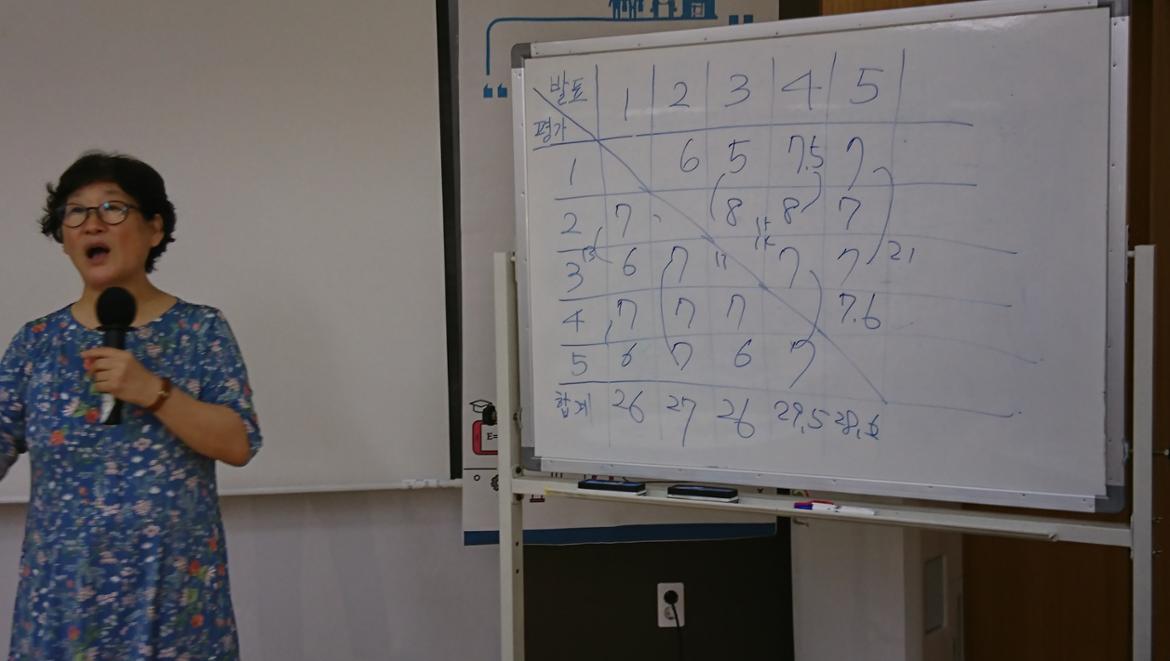 발표 1 2 3 4 5
평가
1 6 5 7.5 7
2 7 8 8 7
3 13 6 7 11 7 7 21
4 7 7 7 7.6
5 6 7 6 7
합계 26 27 26 29,5 28,6
E=